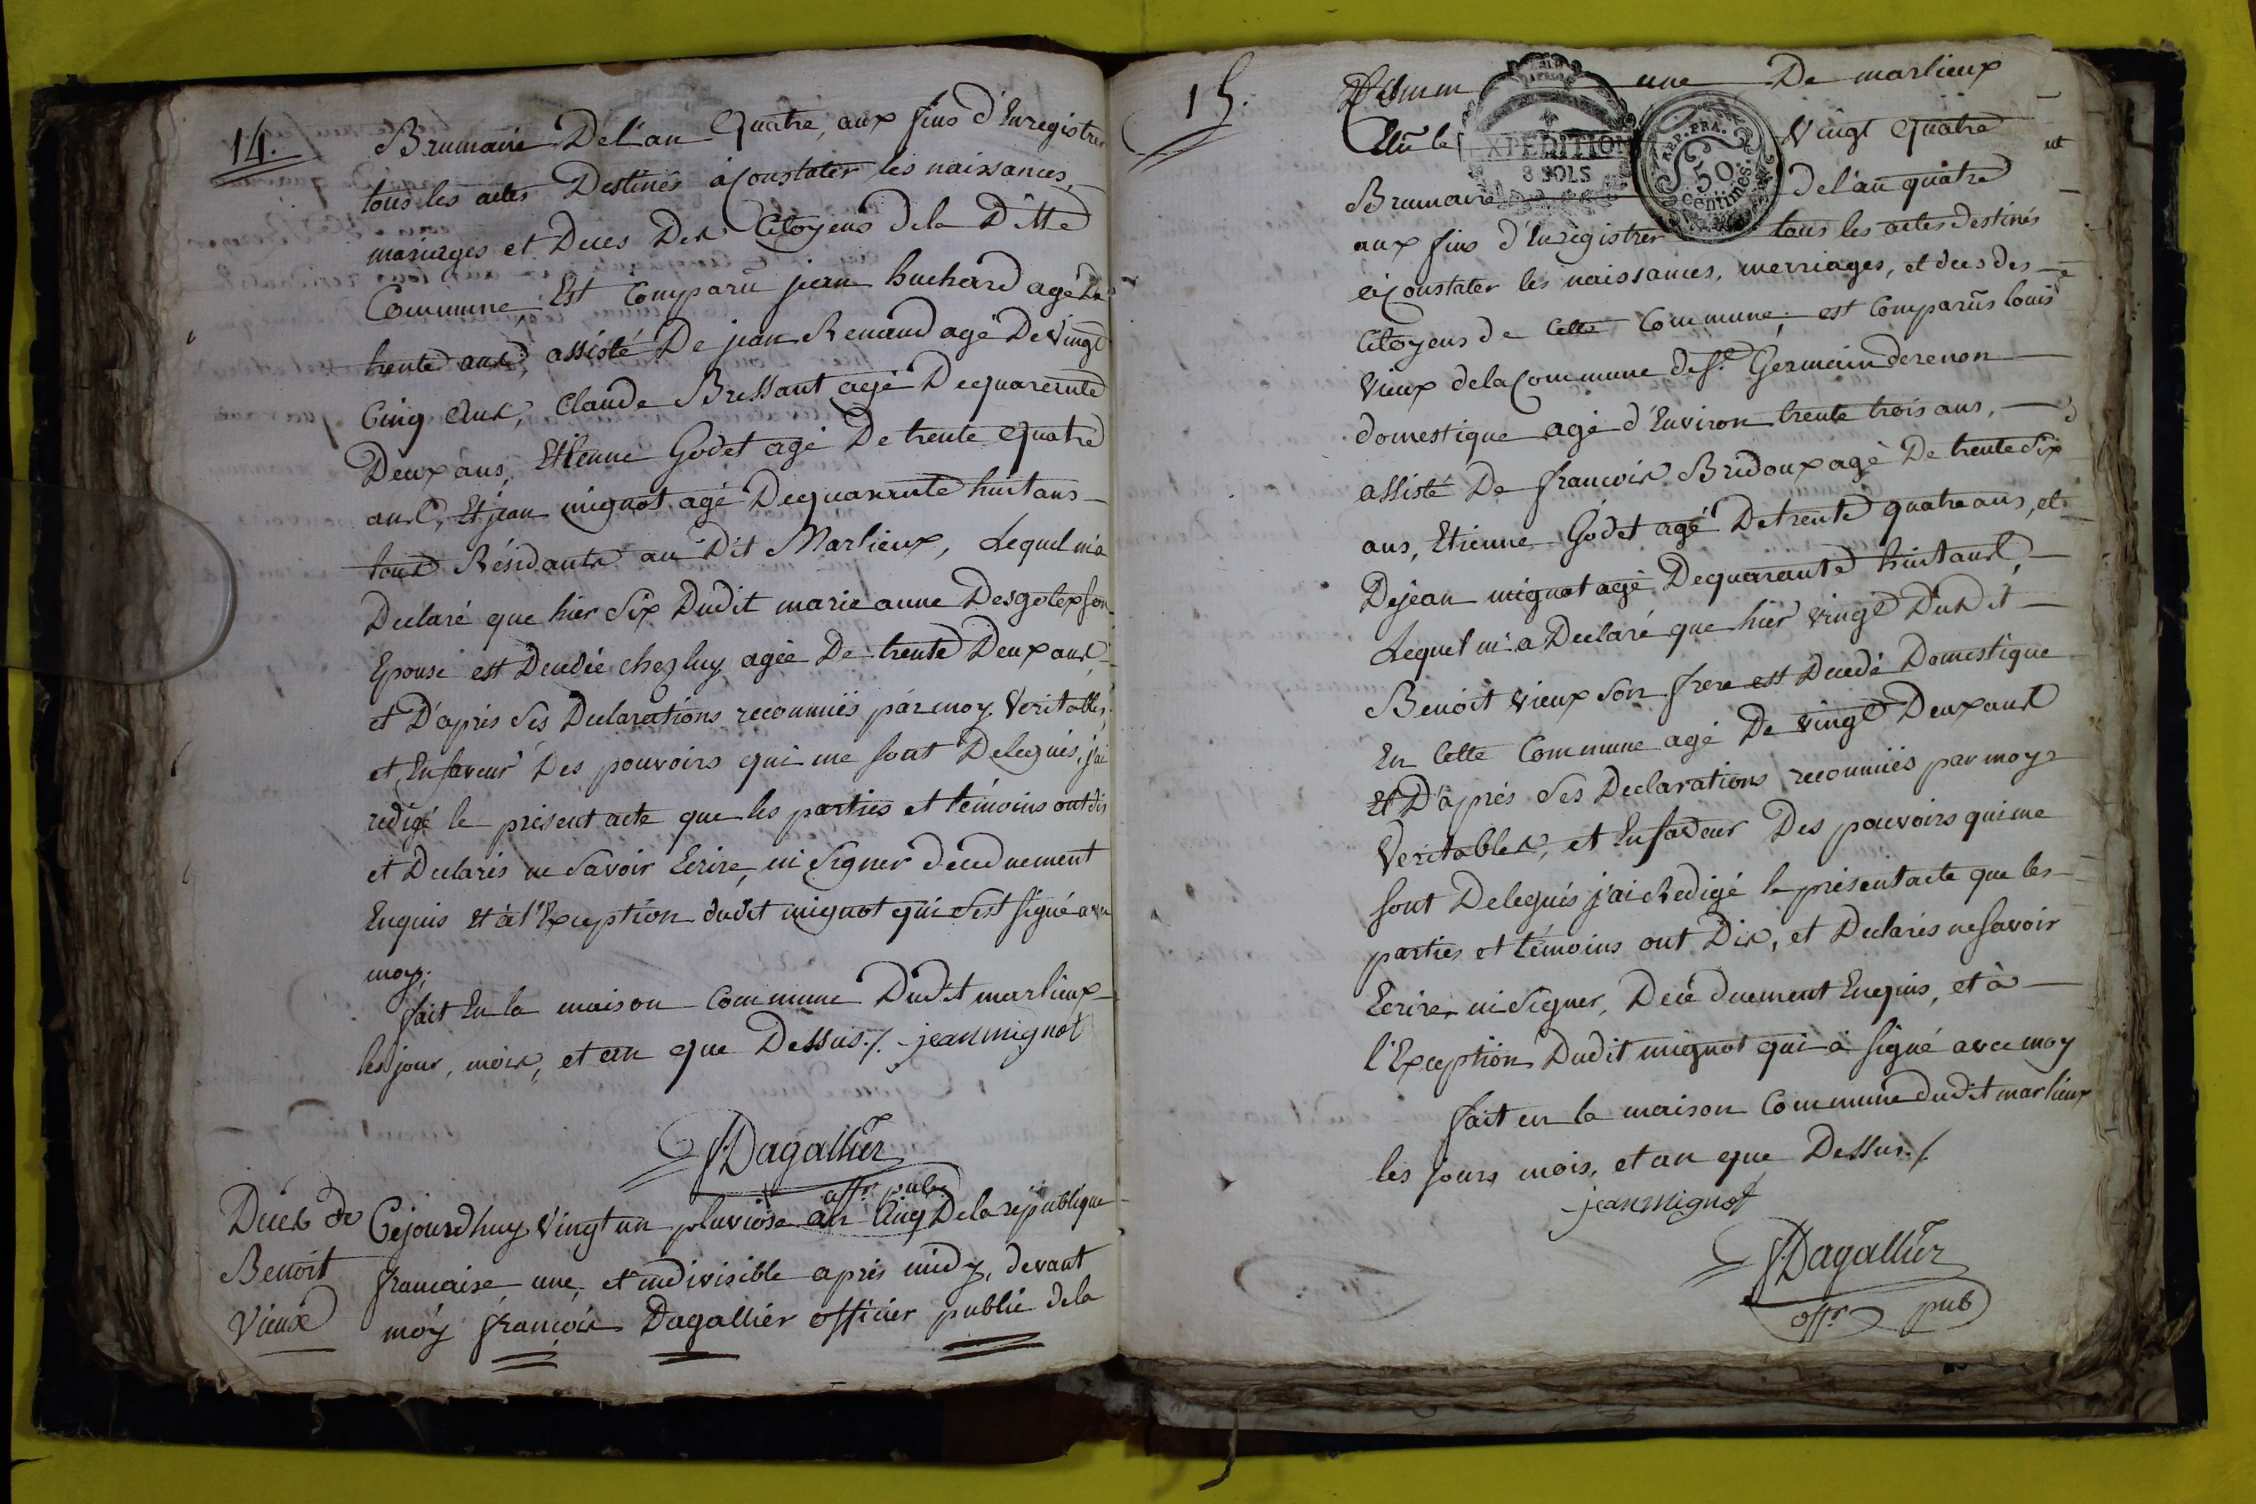 14.
Brumaire De l'an Quatre, aux fins d'Enregistrer
tous les actes Destinés à Constater les naissances,
mariages et Deces Des Citoyens de la Ditte
Commune, Est Comparu jean huchard agé De
trente ans, assisté De jean Renaud agé De Vingt
Cinq ans, Claude Bressant agé De quarente
Deux ans, Etienne Godet agé De trente Quatre
ans, Et jean mignot agé De quarente huit ans
tous Résidants au Dit Marlieux, Lequel m'a
Declaré que hier Six Dudit marie anne Desgolex son
Epouse est Decedée chez luy agée De trente Deux ans
et D'après Ses Declarations reconnuës par moy Veritables,
et En faveur Des pouvoirs qui me sont Delegués, j'ai
redigé le présent acte que les parties et témoins ont dis
et Declarés ne Savoir Ecrire, ni Signer de ce duement
Enquis Et à l'Exception dudit mignot qui s'est signé avec
moy.
fait En la maison Commune Dudit marlieux
les jour, mois, et an que Dessus ./. jean mignot
f. Dagallier
offr pub
Décès de
Benoit
Vieux
Cejourdhuy Vingt un pluviose an Cinq De la république
francaise une, et indivisible après midy, devant
moy françois Dagallier officier public de la
15.
une De marlieux
Elu le Vingt Quatre
Brumaire de l'an quatre
aux fins d'Enregistrer tous les actes destinés
à Constater les naissances, merriages, et deces des
Citoyens de Cette Commune; est Comparus louis
Vieux de la Commune de St. Germain de renon
domestique agé d'Environ trente trois ans,
assisté De francois Bridoux agé De trente Six
ans, Etienne Godet agé De trente quatre ans, et
De jean mignot agé De quarante huit ans,
Lequel m'a Declaré que hier vingt Dudit
Benoit Vieux Son frere est Decedé Domestique
En Cette Commune agé De vingt Deux ans
Et D'après Ses Declarations reconnuës par moy
Veritables, et En faveur Des pouvoirs qui me
sont Delegués j'ai Redigé le présent acte que les
parties et témoins ont Dis, et Declarés ne Savoir
Ecrire, ni Signer, De ce duement Enquis, et à
l'Exception Dudit mignot qui à signé avec moy
fait en la maison Commune dudit marlieux
les jours mois, et an que Dessus ./.
jean mignot
f. Dagallier
offr pub
EXPEDITION
8 SOLS
REP. FRA.
50
centimes.